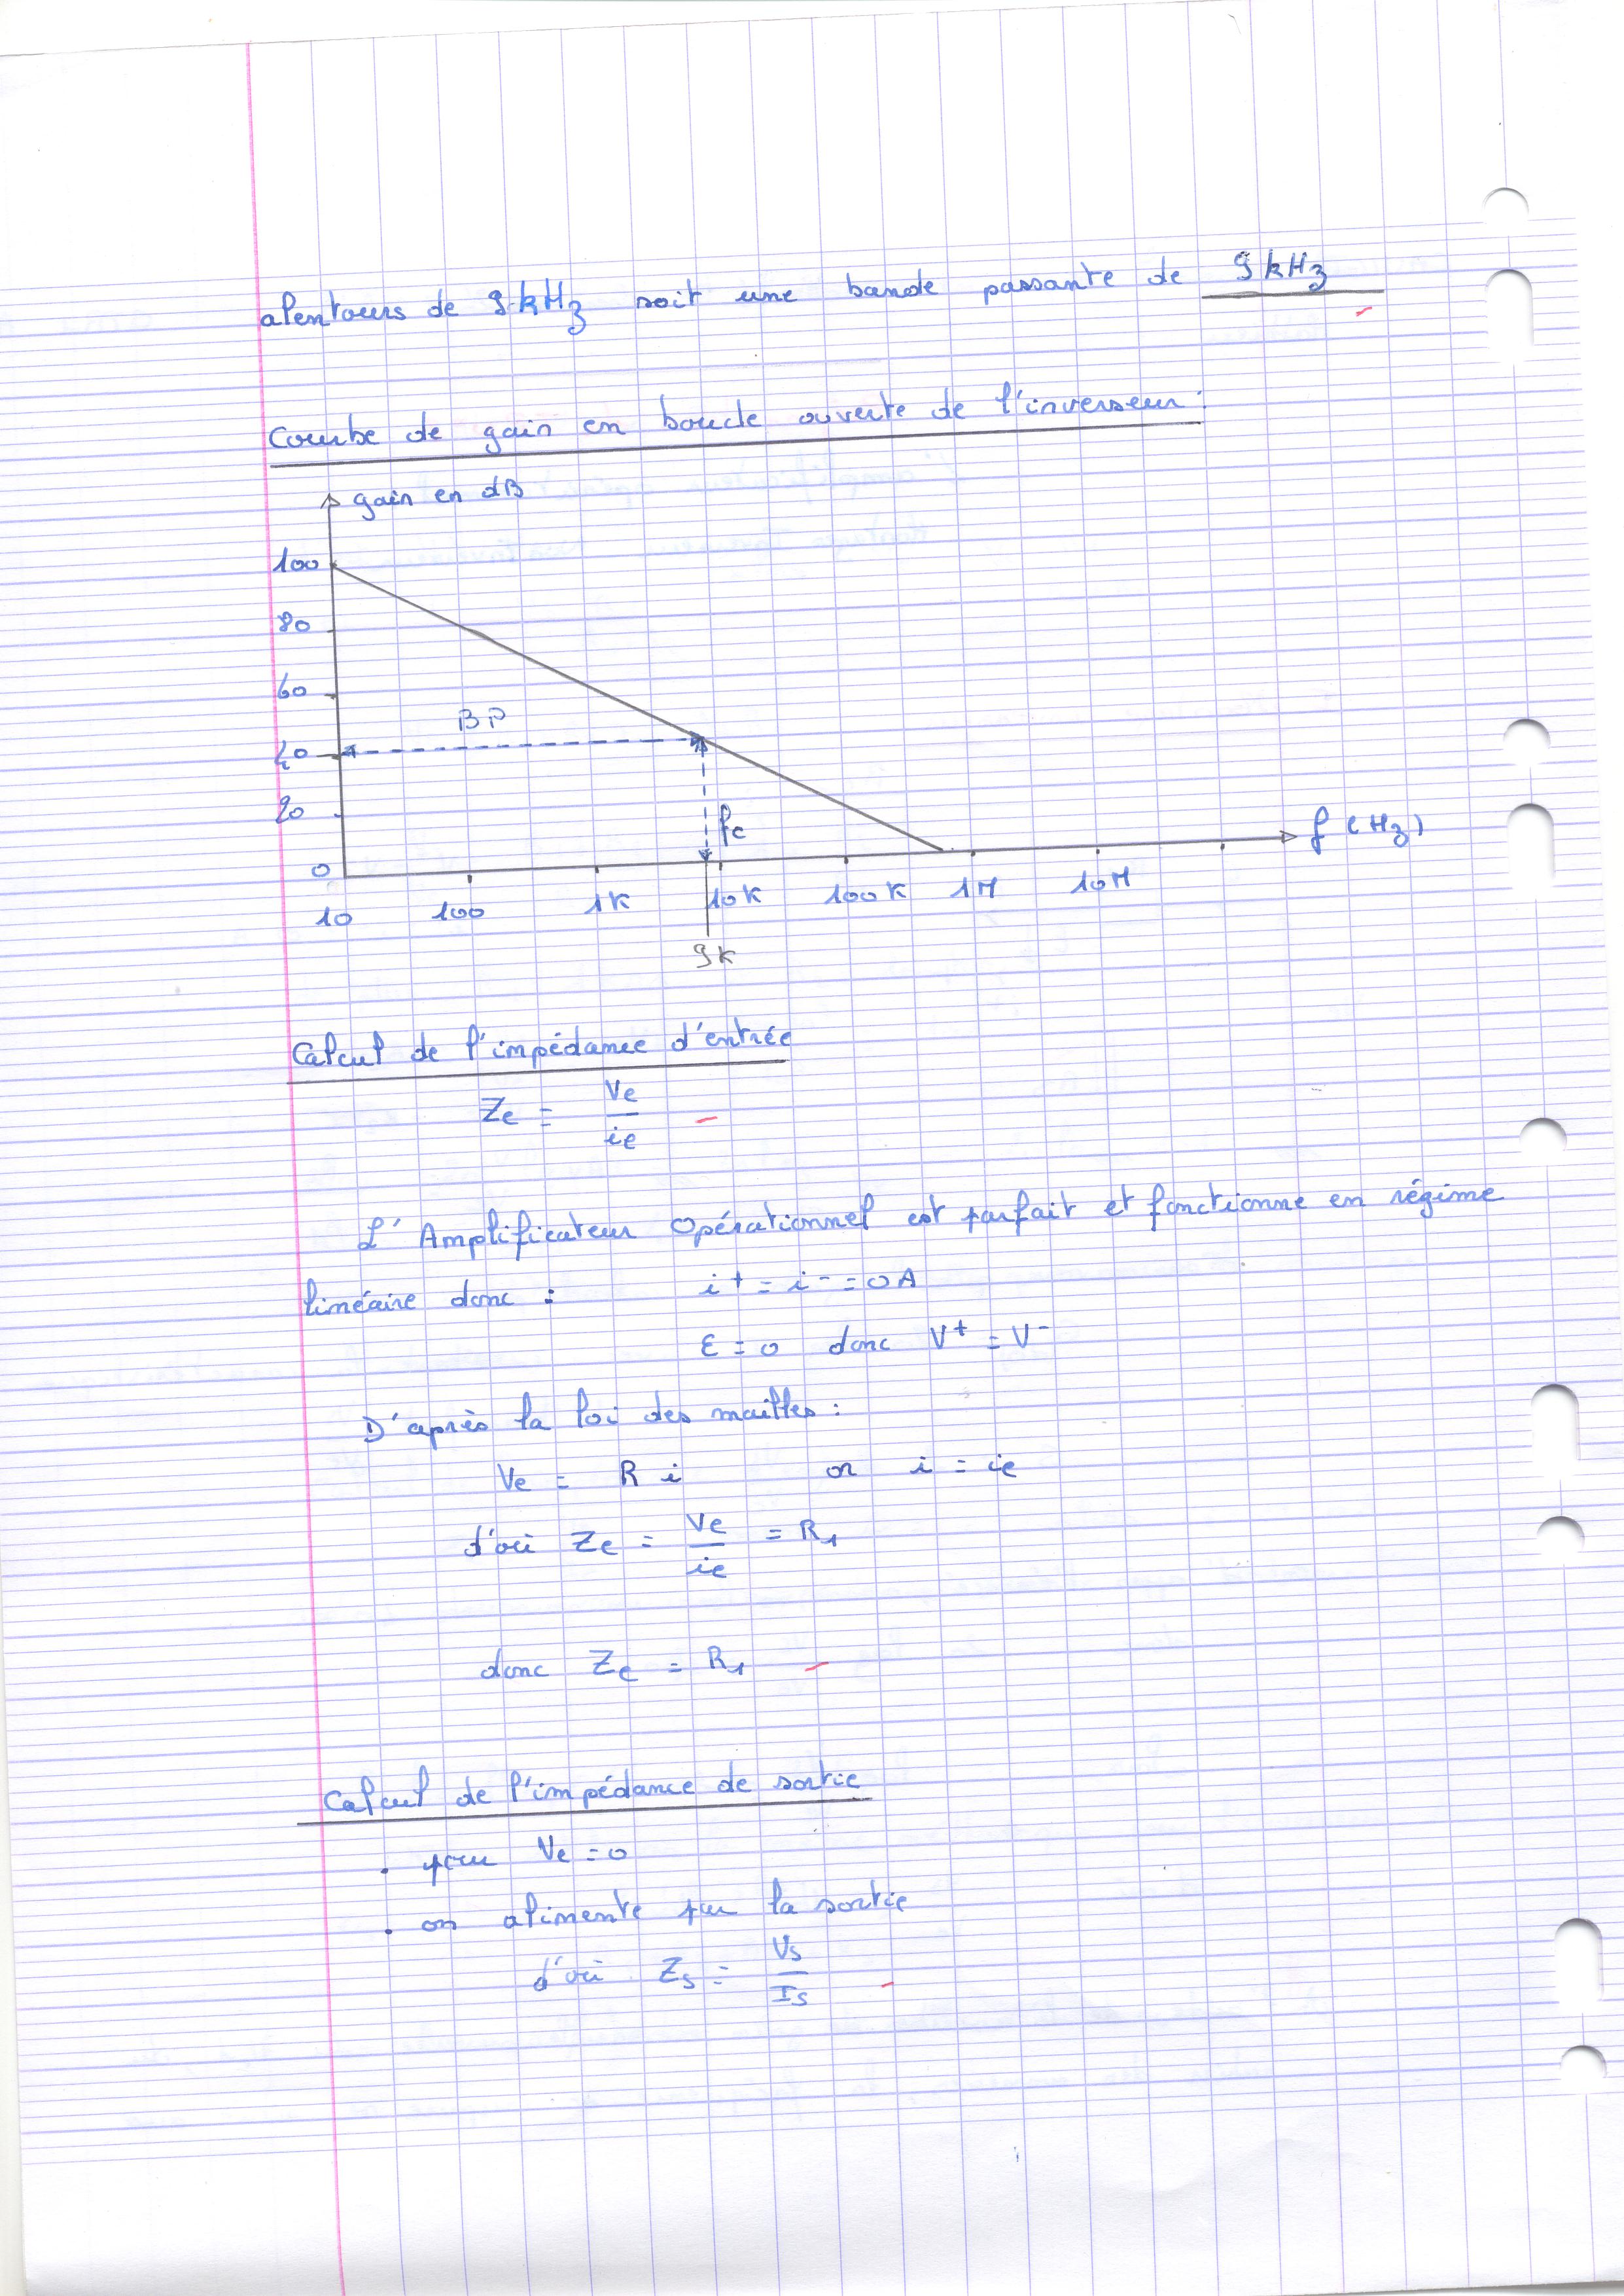 alentours de 9 kHz soit une bande passante de 9 kHz
Courbe de gain en boucle ouverte de l'inverseur :
gain en dB
100
80
60
BP
40
20
fc
f (Hz)
0
10 100 1K 10K 100K 1M 10M
9K
Calcul de l'impédance d'entrée
Ze = Ve / ie
L'Amplificateur Opérationnel est parfait et fonctionne en régime
linéaire donc : i+ = i- = 0A
ε = 0 donc V+ = V-
D'après la loi des mailles :
Ve = R i or i = ie
d'où Ze = Ve / ie = R1
donc Ze = R1
Calcul de l'impédance de sortie
. pour Ve = 0
. on alimente par la sortie
d'où Zs = Vs / Is